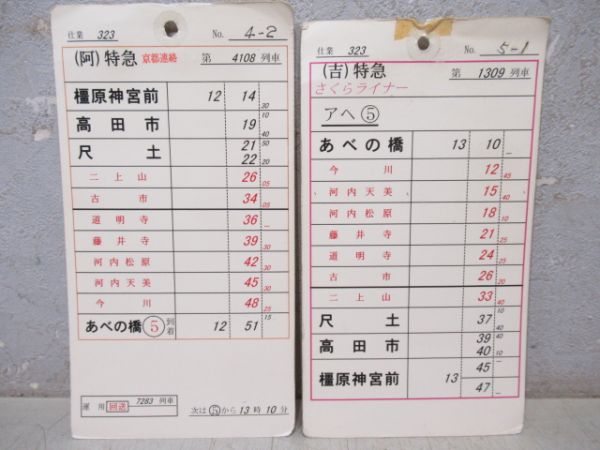 仕業 323 No. 4-2
(阿)特急 京都連絡 第 4108 列車
橿原神宮前 12 14 30
高田市 19 10 40
尺土 21 50
22 20
二上山 26 05
古市 34 05
道明寺 36 —
藤井寺 39 30
河内松原 42 30
河内天美 45 30
今川 48 25
あべの橋 ⑤ 到着 12 51 15
運用 回送 7283 列車
次は⑤から13時10分
仕業 323 No. 5-1
(吉)特急 第 1309 列車
さくらライナー
アヘ⑤
あべの橋 13 10 —
今川 12 45
河内天美 15 40
河内松原 18 10
藤井寺 21 25
道明寺 24 25
古市 26 20
二上山 33 40
尺土 37 10 40
高田市 39 40
40 10
橿原神宮前 13 45 —
47 —